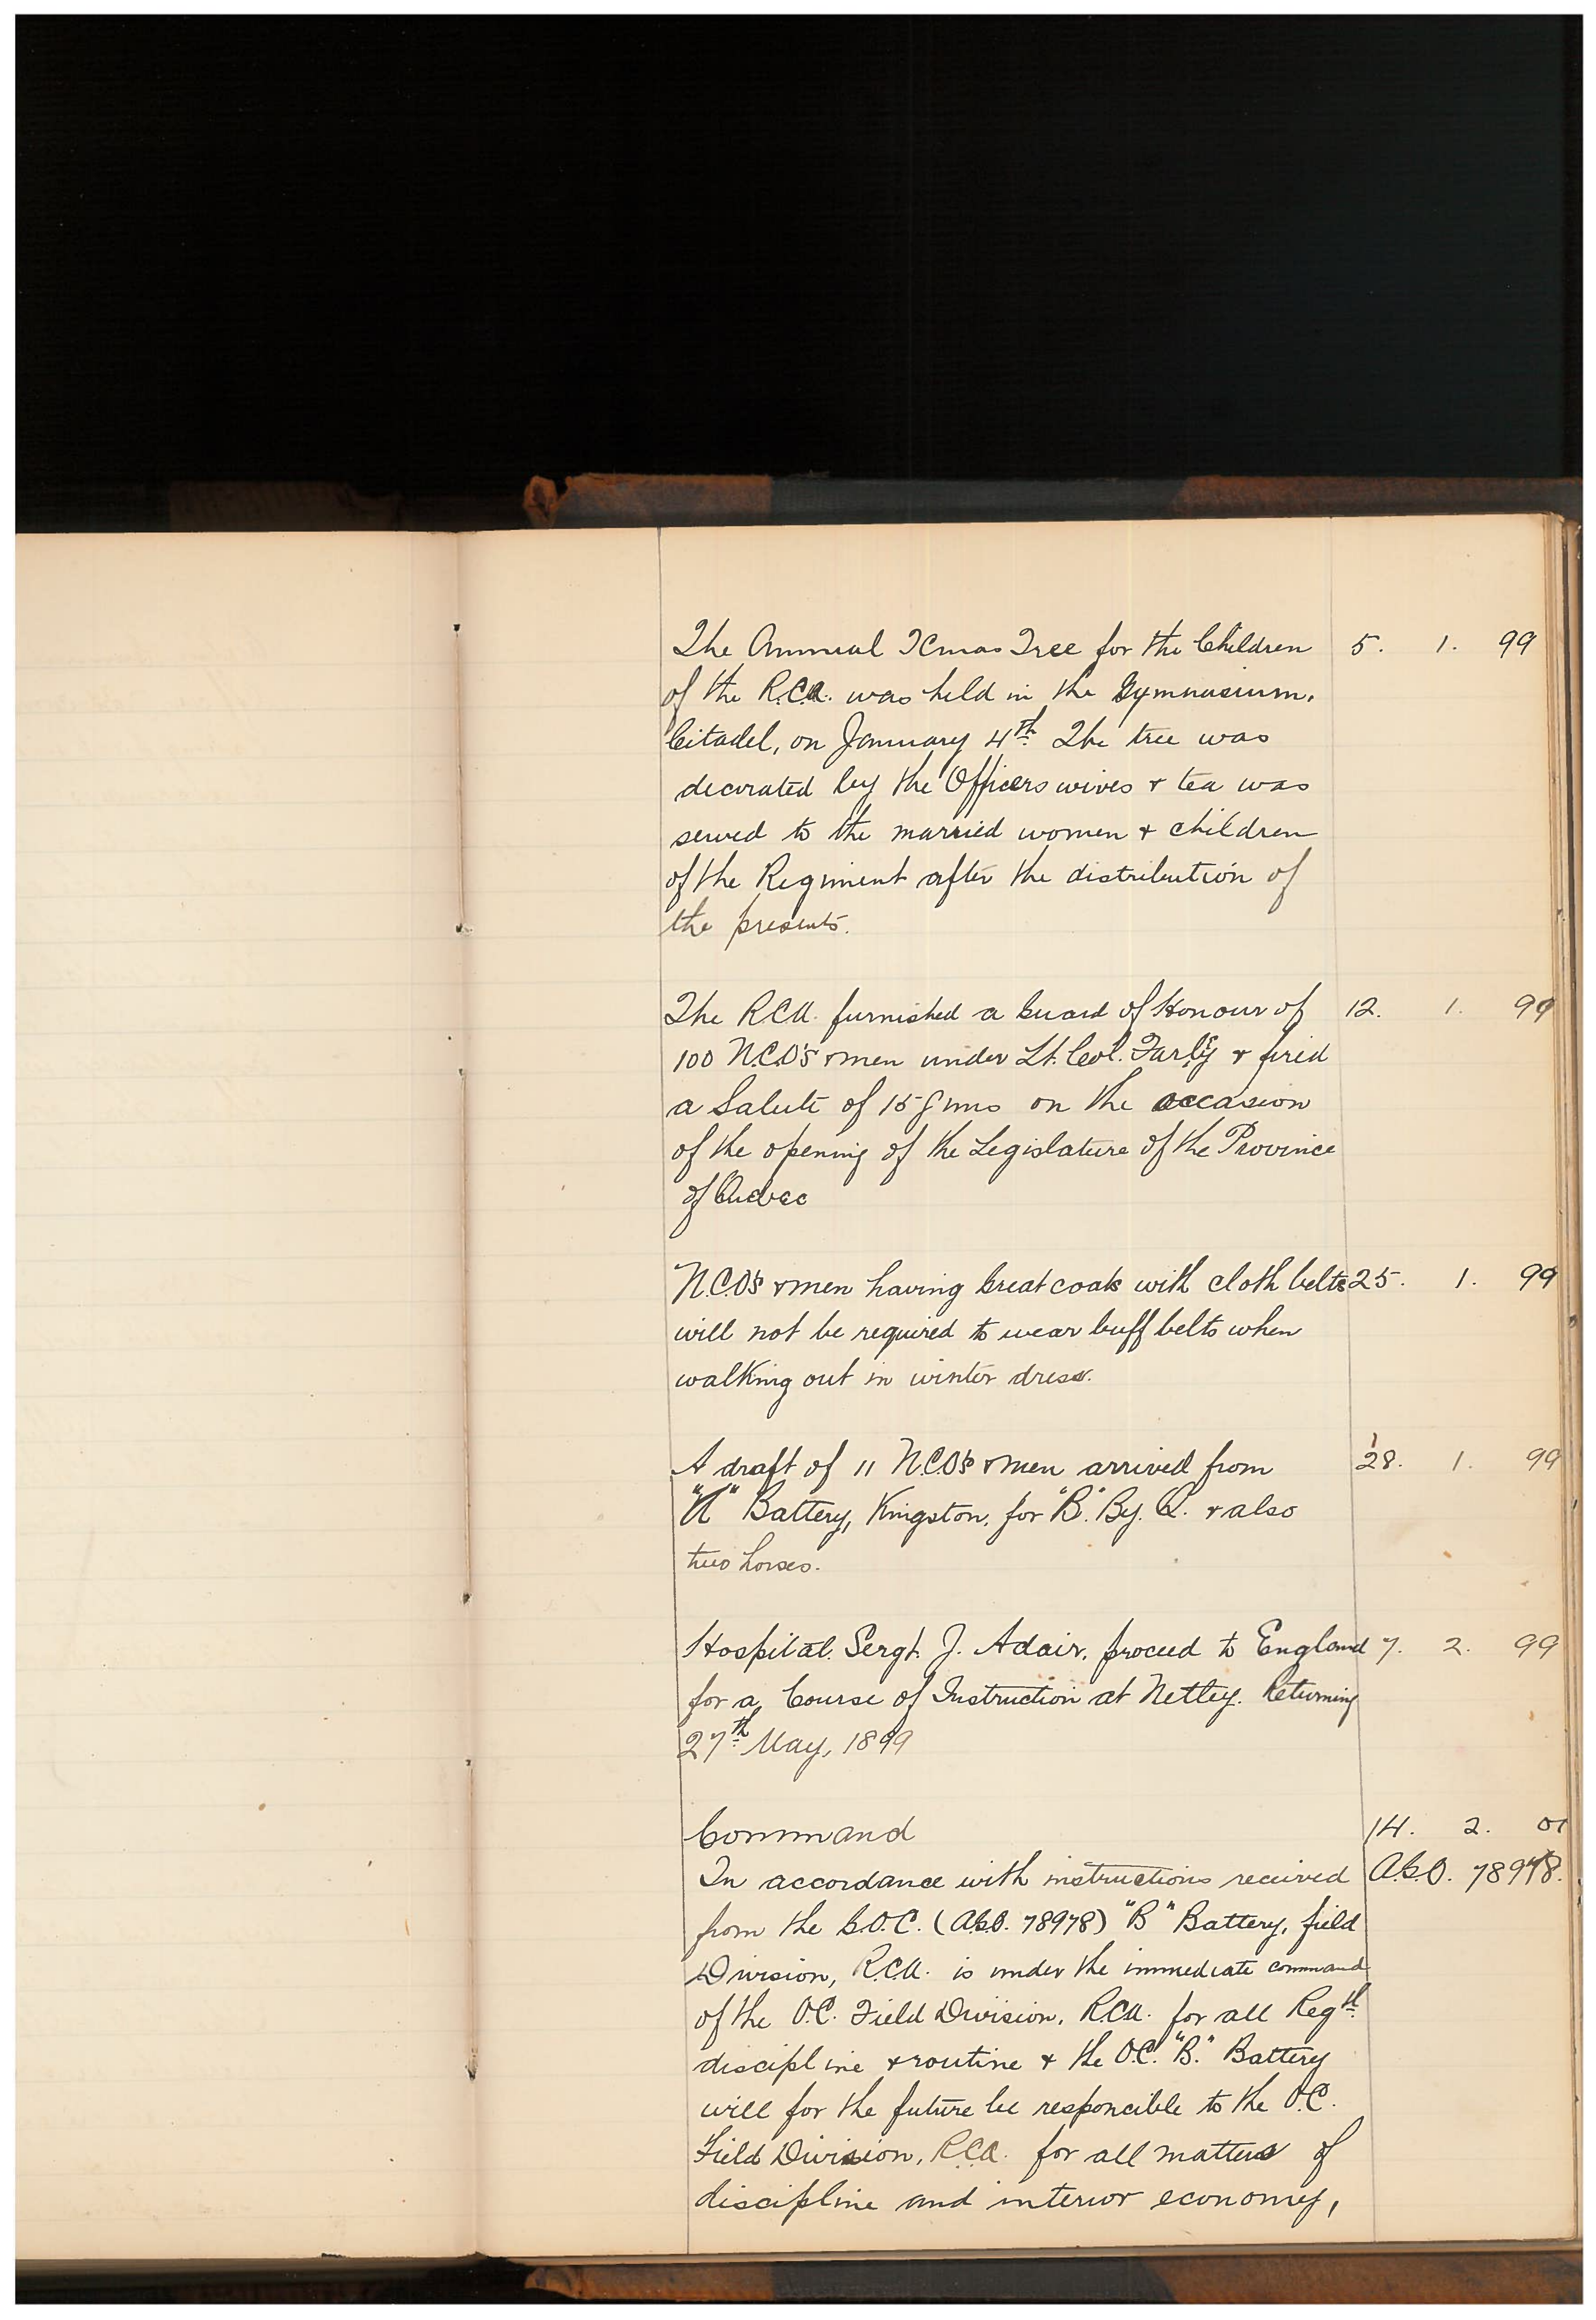 The Annual Xmas Tree for the Children 5. 1. 99
of the R.C.A. was held in the Gymnasium,
Citadel, on January 4th. The tree was
decorated by the Officers wives & tea was
served to the married women & children
of the Regiment after the distribution of
the presents.
The R.C.A. furnished a Guard of Honour of 12. 1. 99
100 N.C.O's & men under Lt. Col. Farley & fired
a Salute of 15 guns on the occasion
of the opening of the Legislature of the Province
of Quebec
N.C.O's & men having Great coats with cloth belts 25. 1. 99
will not be required to wear buff belts when
walking out in winter dress.
A draft of 11 N.C.O's & men arrived from 28. 1. 99
"A" Battery, Kingston, for "B". By. Q. & also
two horses.
Hospital. Sergt. J. Adair, proceed to England 7. 2. 99
for a Course of Instruction at Netley. Returning
27th May, 1899
Command 14. 2. 01
In accordance with instructions received A.G.O. 78978.
from the G.O.C. (A.G.O. 78978) "B" Battery, field
Division, R.C.A. is under the immediate command
of the O.C. Field Division, R.C.A. for all Regtl.
discipline & routine & the O.C. "B." Battery
will for the future be responcible to the O.C.
Field Division, R.C.A. for all matters of
discipline and interior economy,